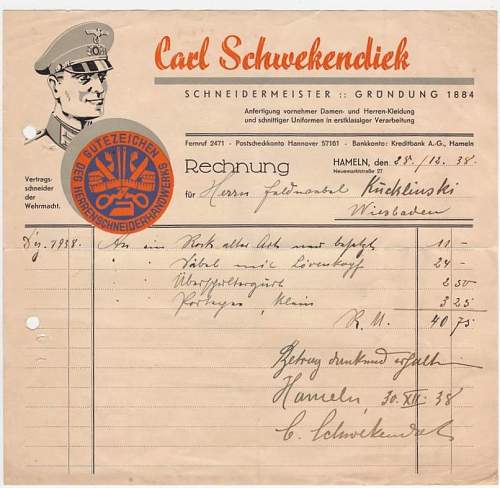 Carl Schwekendiek
SCHNEIDERMEISTER :: GRÜNDUNG 1884
Anfertigung vornehmer Damen- und Herren-Kleidung
und schnittiger Uniformen in erstklassiger Verarbeitung
Fernruf 2471 - Postscheckkonto Hannover 57161 - Bankkonto: Kreditbank A.-G., Hameln
GÜTEZEICHEN
DES HERRENSCHNEIDERHANDWERKS
Vertrags-
schneider der
Wehrmacht.
Rechnung
HAMELN, den 28./12. 38.
Neuemarktstraße 27
für Herrn Feldwebel Küchlinski
Wiesbaden
Dez. 1938. An ein Rock alter Art neu besetzt 11 -
" " Säbel mit Löwenkopf 24 -
" " Überschnallgurt 2 50
" " Portepee, klein 3 25
R. M. 40 75
Betrag dankend erhalten
Hameln, 30. XII. 38
C. Schwekendiek